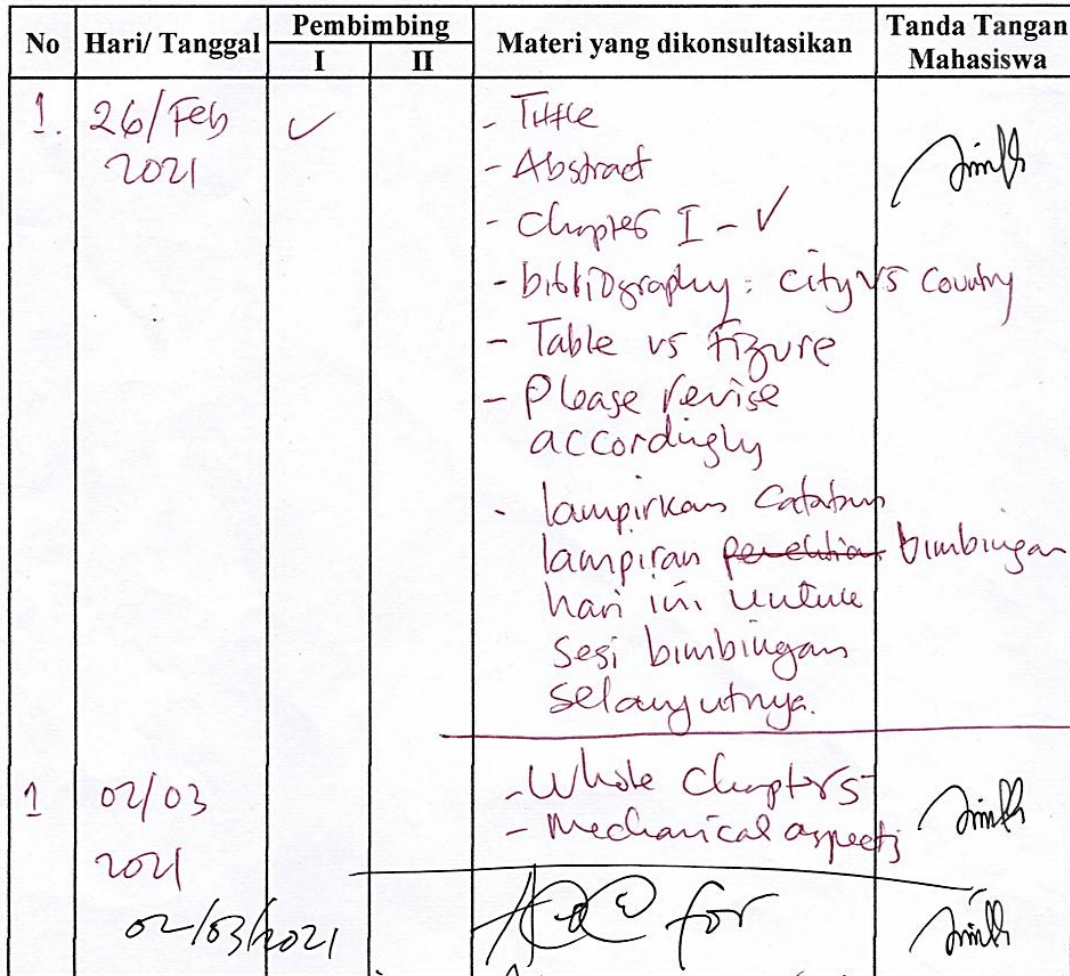 No Hari/ Tanggal Pembimbing Materi yang dikonsultasikan Tanda Tangan
I II Mahasiswa
1. 26/Feb ✓ - Tittle
2021 - Abstract
- Chapter I - ✓
- bibliography: city vs country
- Table vs Figure
- Please revise
accordingly
- lampirkan catatan
lampiran penelitian bimbingan
hari ini untuk
sesi bimbingan
selanjutnya.
1 02/03 - Whole Chapters
2021 - Mechanical aspects
02/03/2021 ACC for